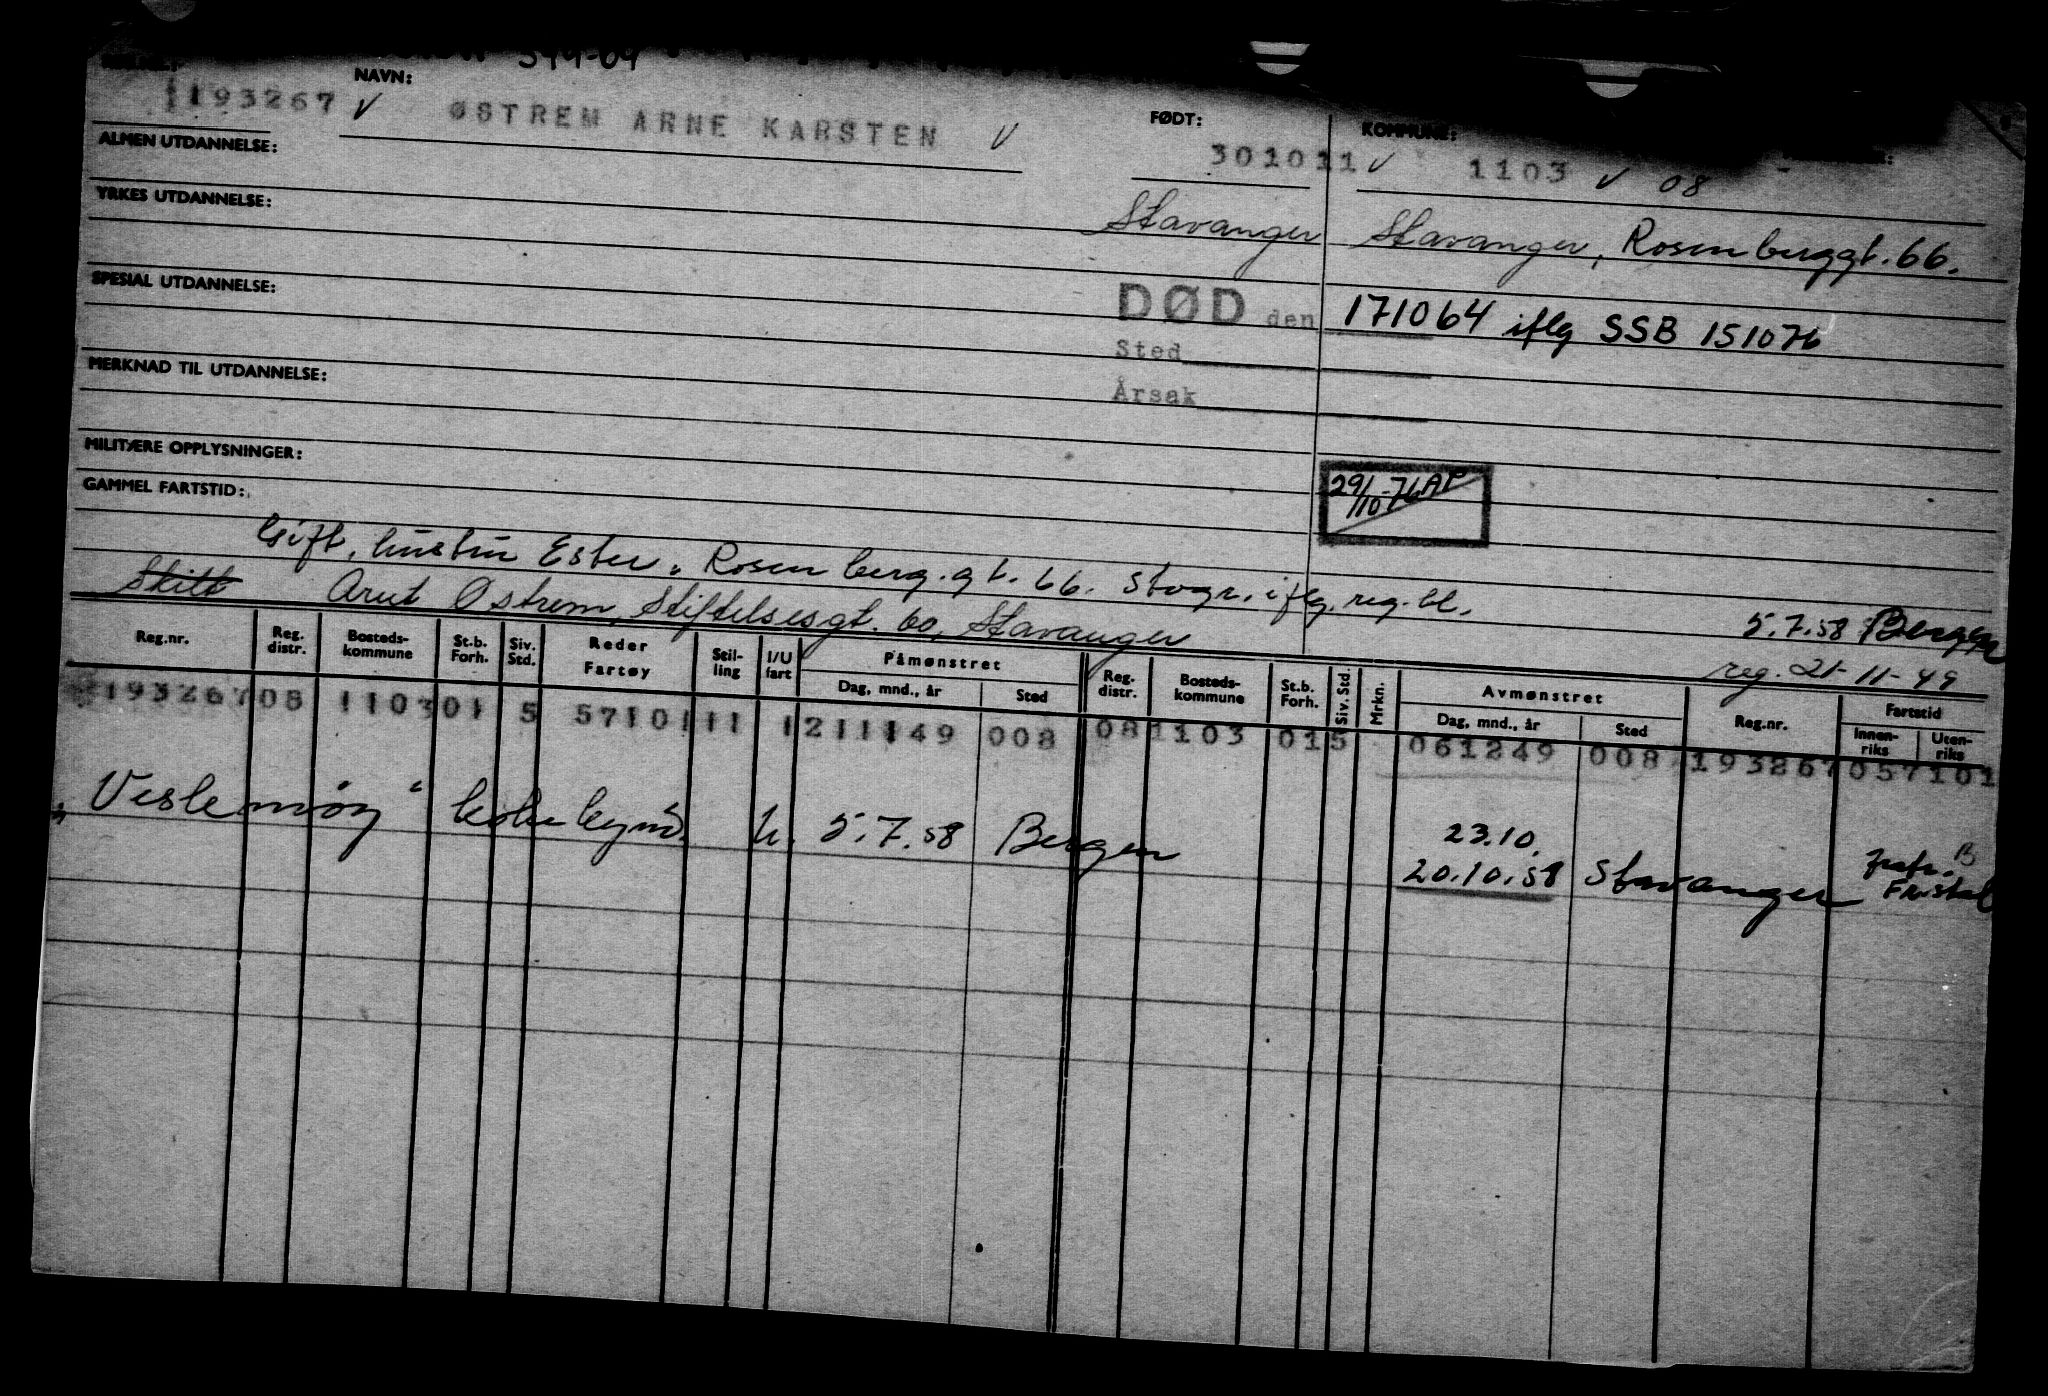 NAVN:
193267 V ØSTREM ARNE KARSTEN V
FØDT:
301011 V
KOMMUNE:
1103 V 08
ALMEN UTDANNELSE:
YRKES UTDANNELSE:
Stavanger
Stavanger, Rosenberggt. 66.
SPESIAL UTDANNELSE:
DØD den 171064 iflg SSB 151076
Sted
Årsak
MERKNAD TIL UTDANNELSE:
MILITÆRE OPPLYSNINGER:
29/10-76 AP
GAMMEL FARTSTID:
Gift, hustru Ester, Rosenberg.gt. 66. Stvgr. iflg. reg. bl.
5.7.58 Bergen
Skilt Arut Østrem, Stiftelsesgt. 60, Stavanger
reg. 21-11-49
Reg.nr. Reg. distr. Bosteds-kommune St.b. Forh. Siv. Std. Reder Fartøy Stil-ling I/U fart Påmønstret Dag, mnd., år Sted Reg. distr. Bosteds-kommune St.b. Forh. Siv. Std. Mrkn. Avmønstret Dag, mnd., år Sted Reg.nr. Fartstid Innen-riks Uten-riks
193267 08 1103 01 5 5710111 1 211149 008 08 1103 01 5 061249 008 193267 057101
"Veslemøy" U. 5.7.58 Bergen 23.10. 20.10.58 Stavanger